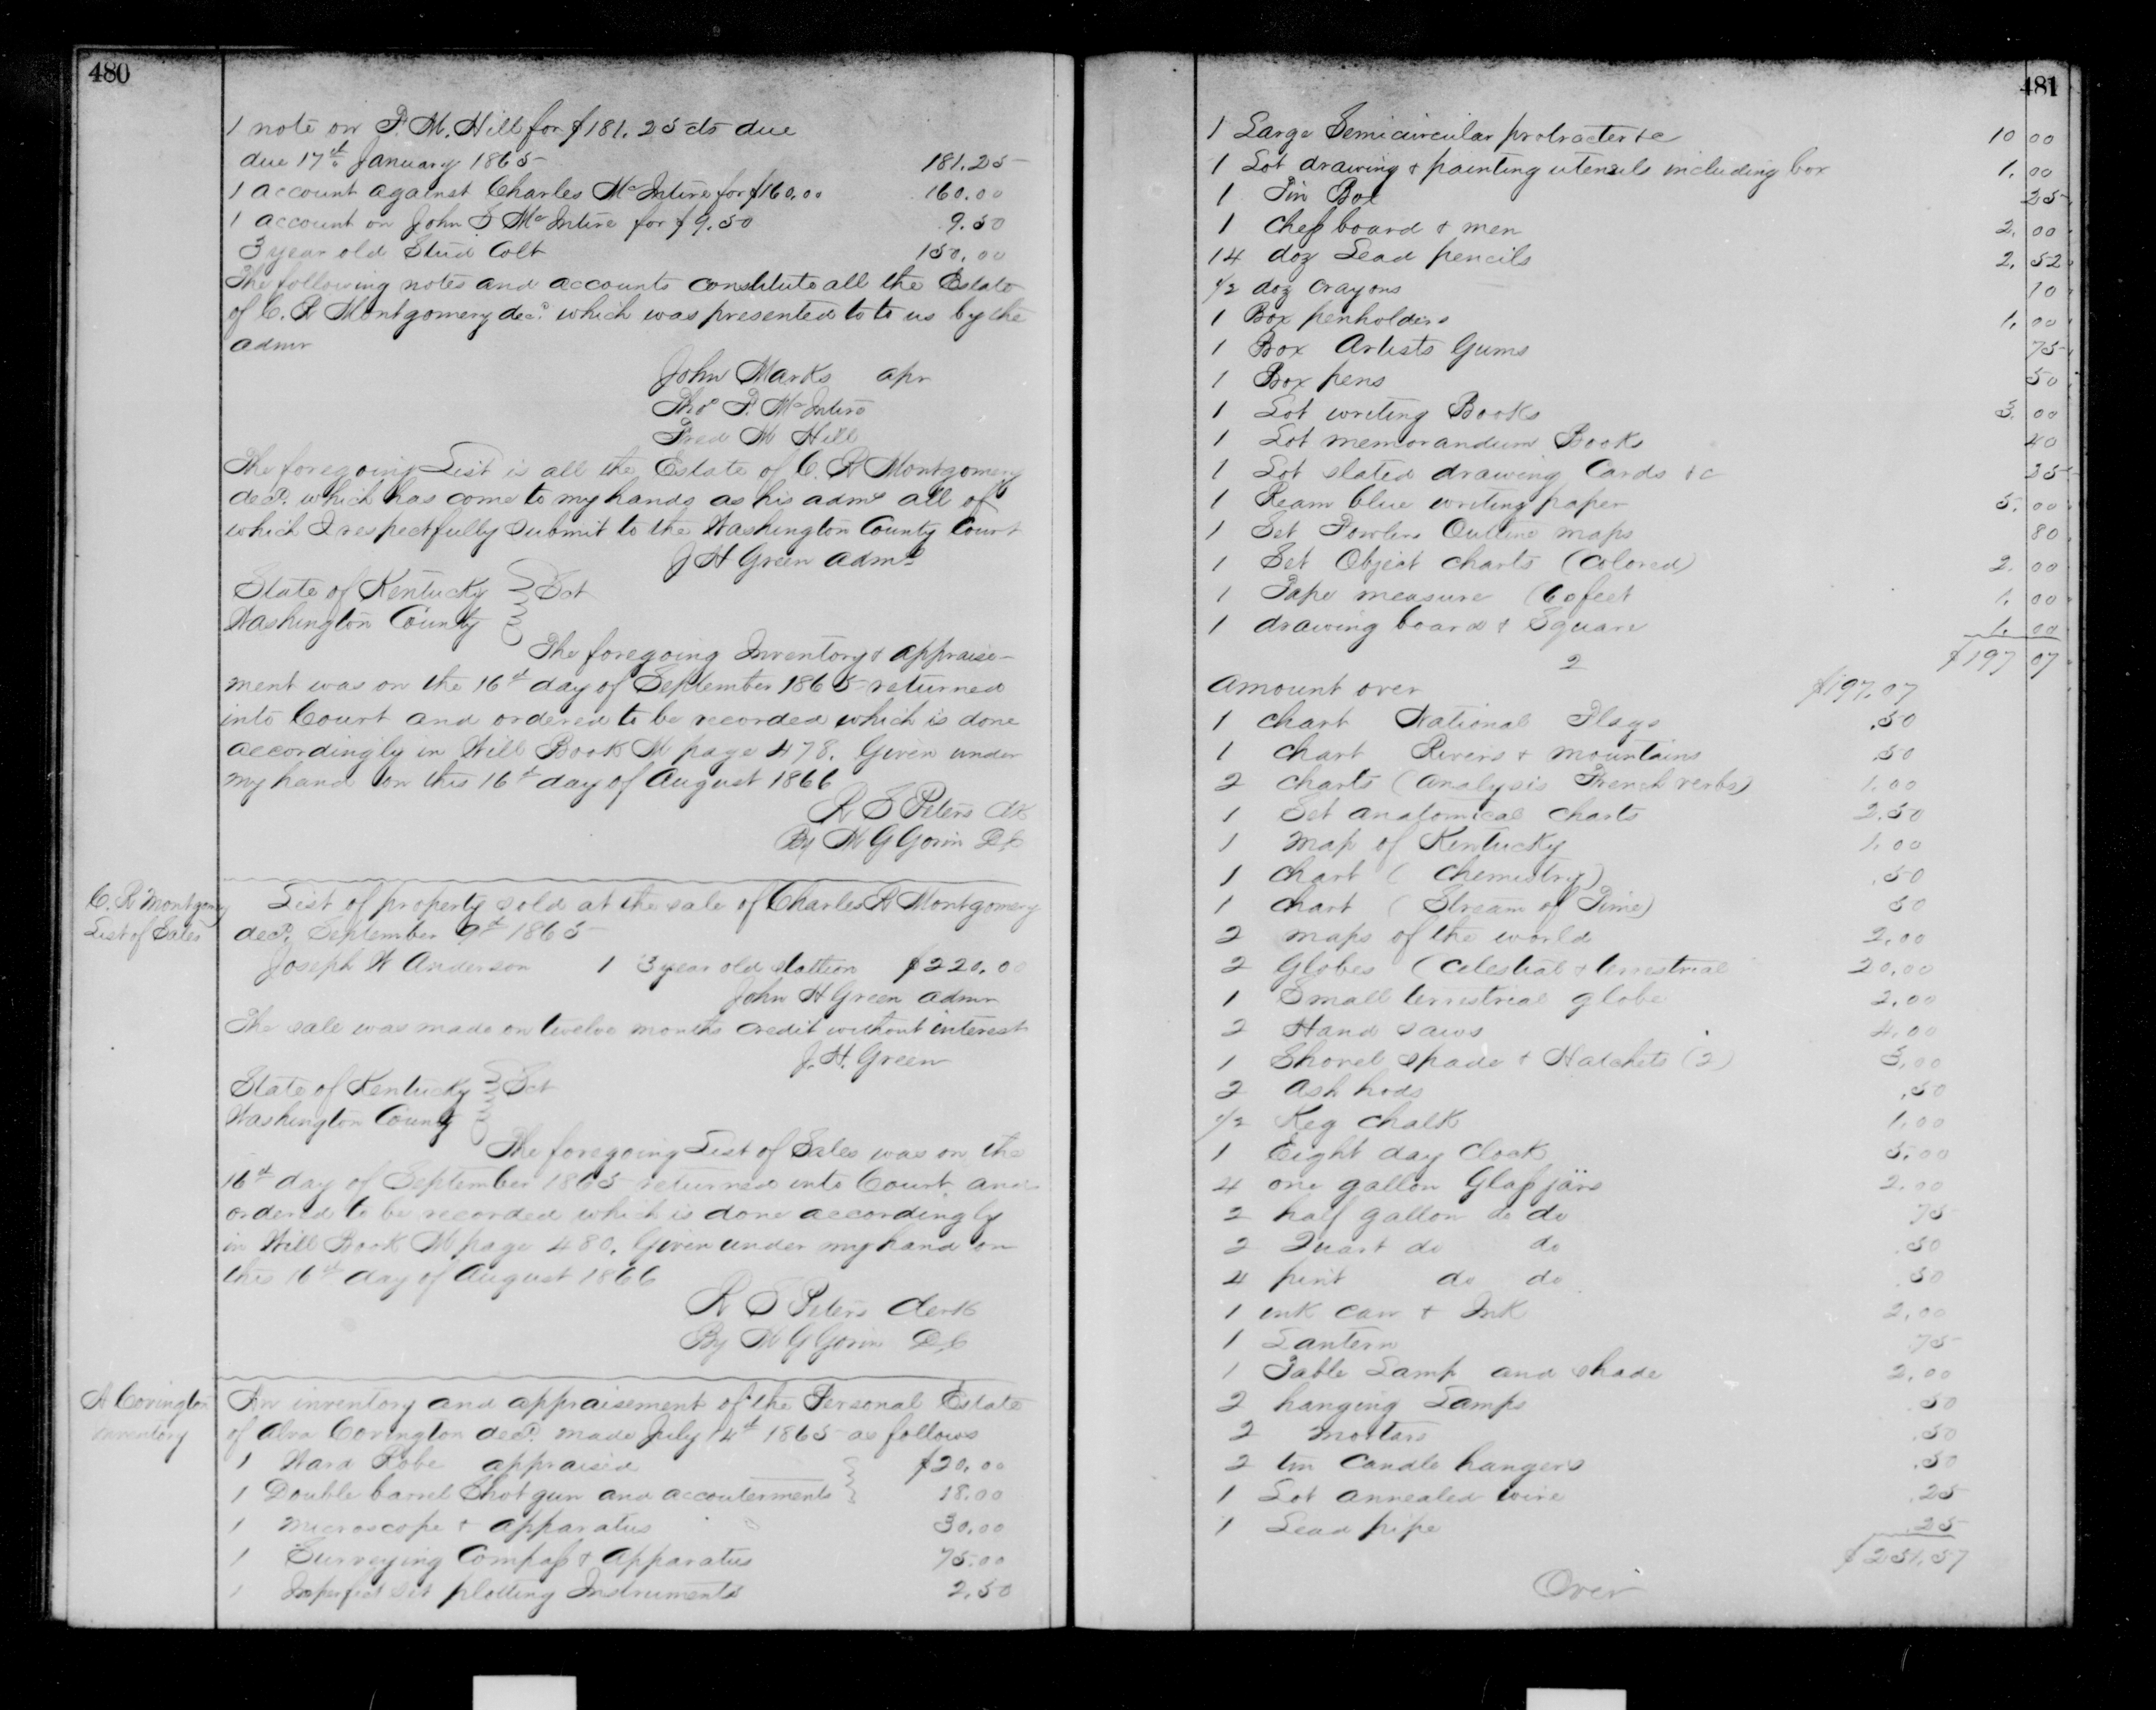 480
1 note on P. M. Hill for $181.25 cts due
due 17th January 1865 181.25
1 account against Charles McIntire for $160.00 160.00
1 account on John S McIntire for $9.50 9.50
3 year old Stud Colt 150.00
The following notes and accounts constitute all the Estate
of C. R Montgomery decd. which was presented to to us by the
admr
John Marks apr
Thos P. McIntire
Fred M Hill
The foregoing List is all the Estate of C. R Montgomery
decd. which has come to my hands as his admr all of
which I respectfully submit to the Washington County Court
J H Green admr
State of Kentucky } Sct
Washington County
The foregoing Inventory & appraise-
ment was on the 16th day of September 1865 returned
into Court and ordered to be recorded which is done
accordingly in Will Book M page 478. Given under
my hand on this 16th day of August 1866
R S Peters Clk
By W G Gorin DC
C. R Montgomery
List of Sales
List of property sold at the sale of Charles R Montgomery
decd. September 9th 1865
Joseph W Anderson 1 3 year old stallion $220.00
John H Green admr
The sale was made on twelve months credit without interest
J. H. Green
State of Kentucky } Sct
Washington County
The foregoing List of Sales was on the
16th day of September 1865 returned into Court and
ordered to be recorded which is done accordingly
in Will Book M page 480. Given under my hand on
this 16th day of August 1866
R S Peters Clerk
By W G Gorin DC
A Covington
Inventory
An inventory and appraisement of the Personal Estate
of Alva Covington decd. made July 14th 1865 as follows
1 Ward Robe appraised $20.00
1 Double barrel Shot gun and accouterments 18.00
1 Microscope & apparatus 30.00
1 Surveying Compass & Apparatus 75.00
1 Imperfect set plotting Instruments 2.50
481
1 Large Semicircular protracter &c 10 00
1 Lot drawing & painting utensils including box 1. 00
1 Tin Box 25
1 Chess board & men 2. 00
14 doz Lead pencils 2. 52
1/2 doz Crayons 10
1 Box penholders 1. 00
1 Box Artists Gums 75
1 Box pens 50
1 Lot writing Books 3. 00
1 Lot memorandum Books 40
1 Lot slated drawing Cards &c 25
1 Ream blue writing paper 5. 00
1 Set Fowlers Outline maps 80
1 Set Object charts (Colored) 2. 00
1 Tape measure (60 feet 1. 00
1 drawing board & Square 1. 00
2 $197 07
Amount over $197.07
1 chart National Flags .50
1 chart Rivers & mountains .50
2 charts (analysis French verbs) 1.00
1 Set anatomical charts 2.50
1 map of Kentucky 1.00
1 chart (Chemistry) .50
1 chart (Stream of Time) 50
2 maps of the world 2.00
2 Globes (Celestial & terrestrial 20.00
1 Small terrestrial globe 2.00
2 Hand saws 4.00
1 Shovel spade & Hatchets (2) 3.00
2 ash hods .50
1/2 Keg chalk 1.00
1 Eight day Clock 5.00
4 one gallon Glass jars 2.00
2 half gallon do do 75
2 Quart do do .50
4 pint do do .50
1 ink can & Ink 2.00
1 Lantern .75
1 Table Lamp and shade 2.00
2 hanging Lamps .50
2 mortars .50
2 tin Candle hangers .50
1 Lot annealed wire .25
1 Lead pipe .25
$251.57
Over